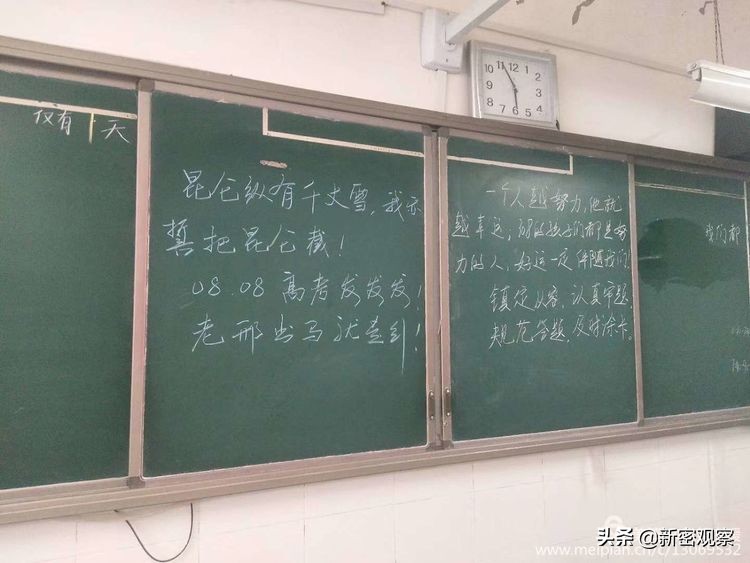 仅有 天
昆仑纵有千丈雪，我亦
誓把昆仑截！
08.08 高考发发发！
老邢出马就 ！
一个人越努力，他就
越幸运；08的孩子们都是努
力的人，好运一定伴随我们！
镇定从容，认真审题，
规范答题，及时涂卡。
我们都
12 1 2 3 4 5 6 7 8 9 10 11
头条 @新密观察
www.meipian.cn/c/13069532